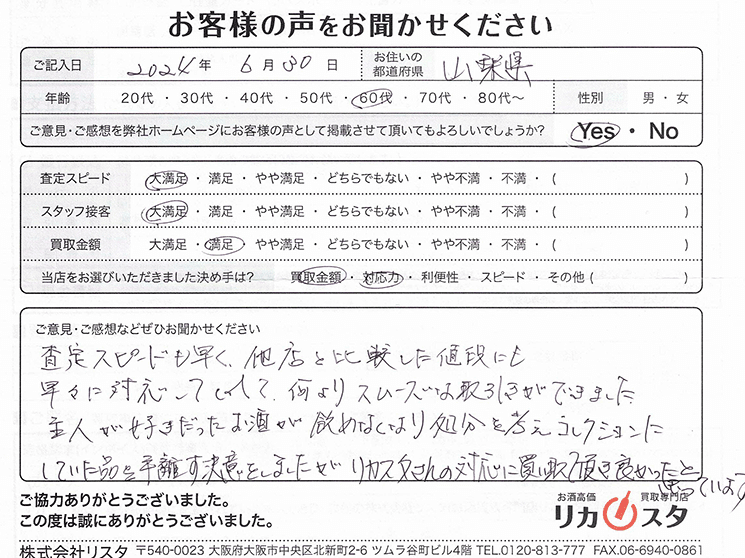 お客様の声をお聞かせください
ご記入日 2024年 6月 30日 お住いの都道府県 山梨県
年齢 20代・30代・40代・50代・60代・70代・80代〜 性別 男・女
ご意見・ご感想を弊社ホームページにお客様の声として掲載させて頂いてもよろしいでしょうか? Yes・No
査定スピード 大満足・満足・やや満足・どちらでもない・やや不満・不満・( )
スタッフ接客 大満足・満足・やや満足・どちらでもない・やや不満・不満・( )
買取金額 大満足・満足・やや満足・どちらでもない・やや不満・不満・( )
当店をお選びいただきました決め手は? 買取金額・対応力・利便性・スピード・その他( )
ご意見・ご感想などぜひお聞かせください
査定スピードも早く、他店と比較した値段にも
早々に対応してくれて、何よりスムーズなお取引きができました
主人が好きだったお酒が飲めなくなり処分を考えコレクションに
していた品を手離す決意をしましたがリカスタさんの対応に買い取って頂き良かったと
思っています
ご協力ありがとうございました。
この度は誠にありがとうございました。
お酒高価 買取専門店
リカスタ
株式会社リスタ 〒540-0023 大阪府大阪市中央区北新町2-6 ツムラ谷町ビル4階 TEL.0120-813-777 FAX.06-6940-0861